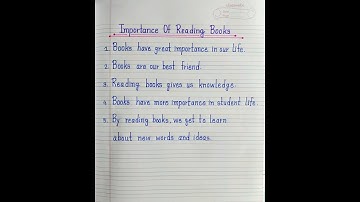 Importance Of Reading Books
1. Books have great importance in our life.
2. Books are our best friend.
3. Reading books gives us knowledge.
4. Books have more importance in student life.
5. By reading books, we get to learn
about new words and ideas.